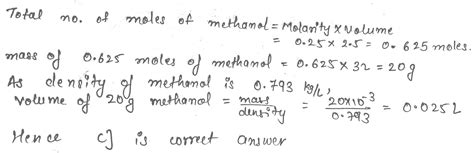 Total no. of moles of methanol = Molarity x volume
= 0.25 x 2.5 = 0.625 moles.
mass of 0.625 moles of methanol = 0.625 x 32 = 20g
As density of methanol is 0.793 kg/L,
volume of 20g methanol = mass/density = 20x10^-3/0.793 = 0.025L
Hence c] is correct answer